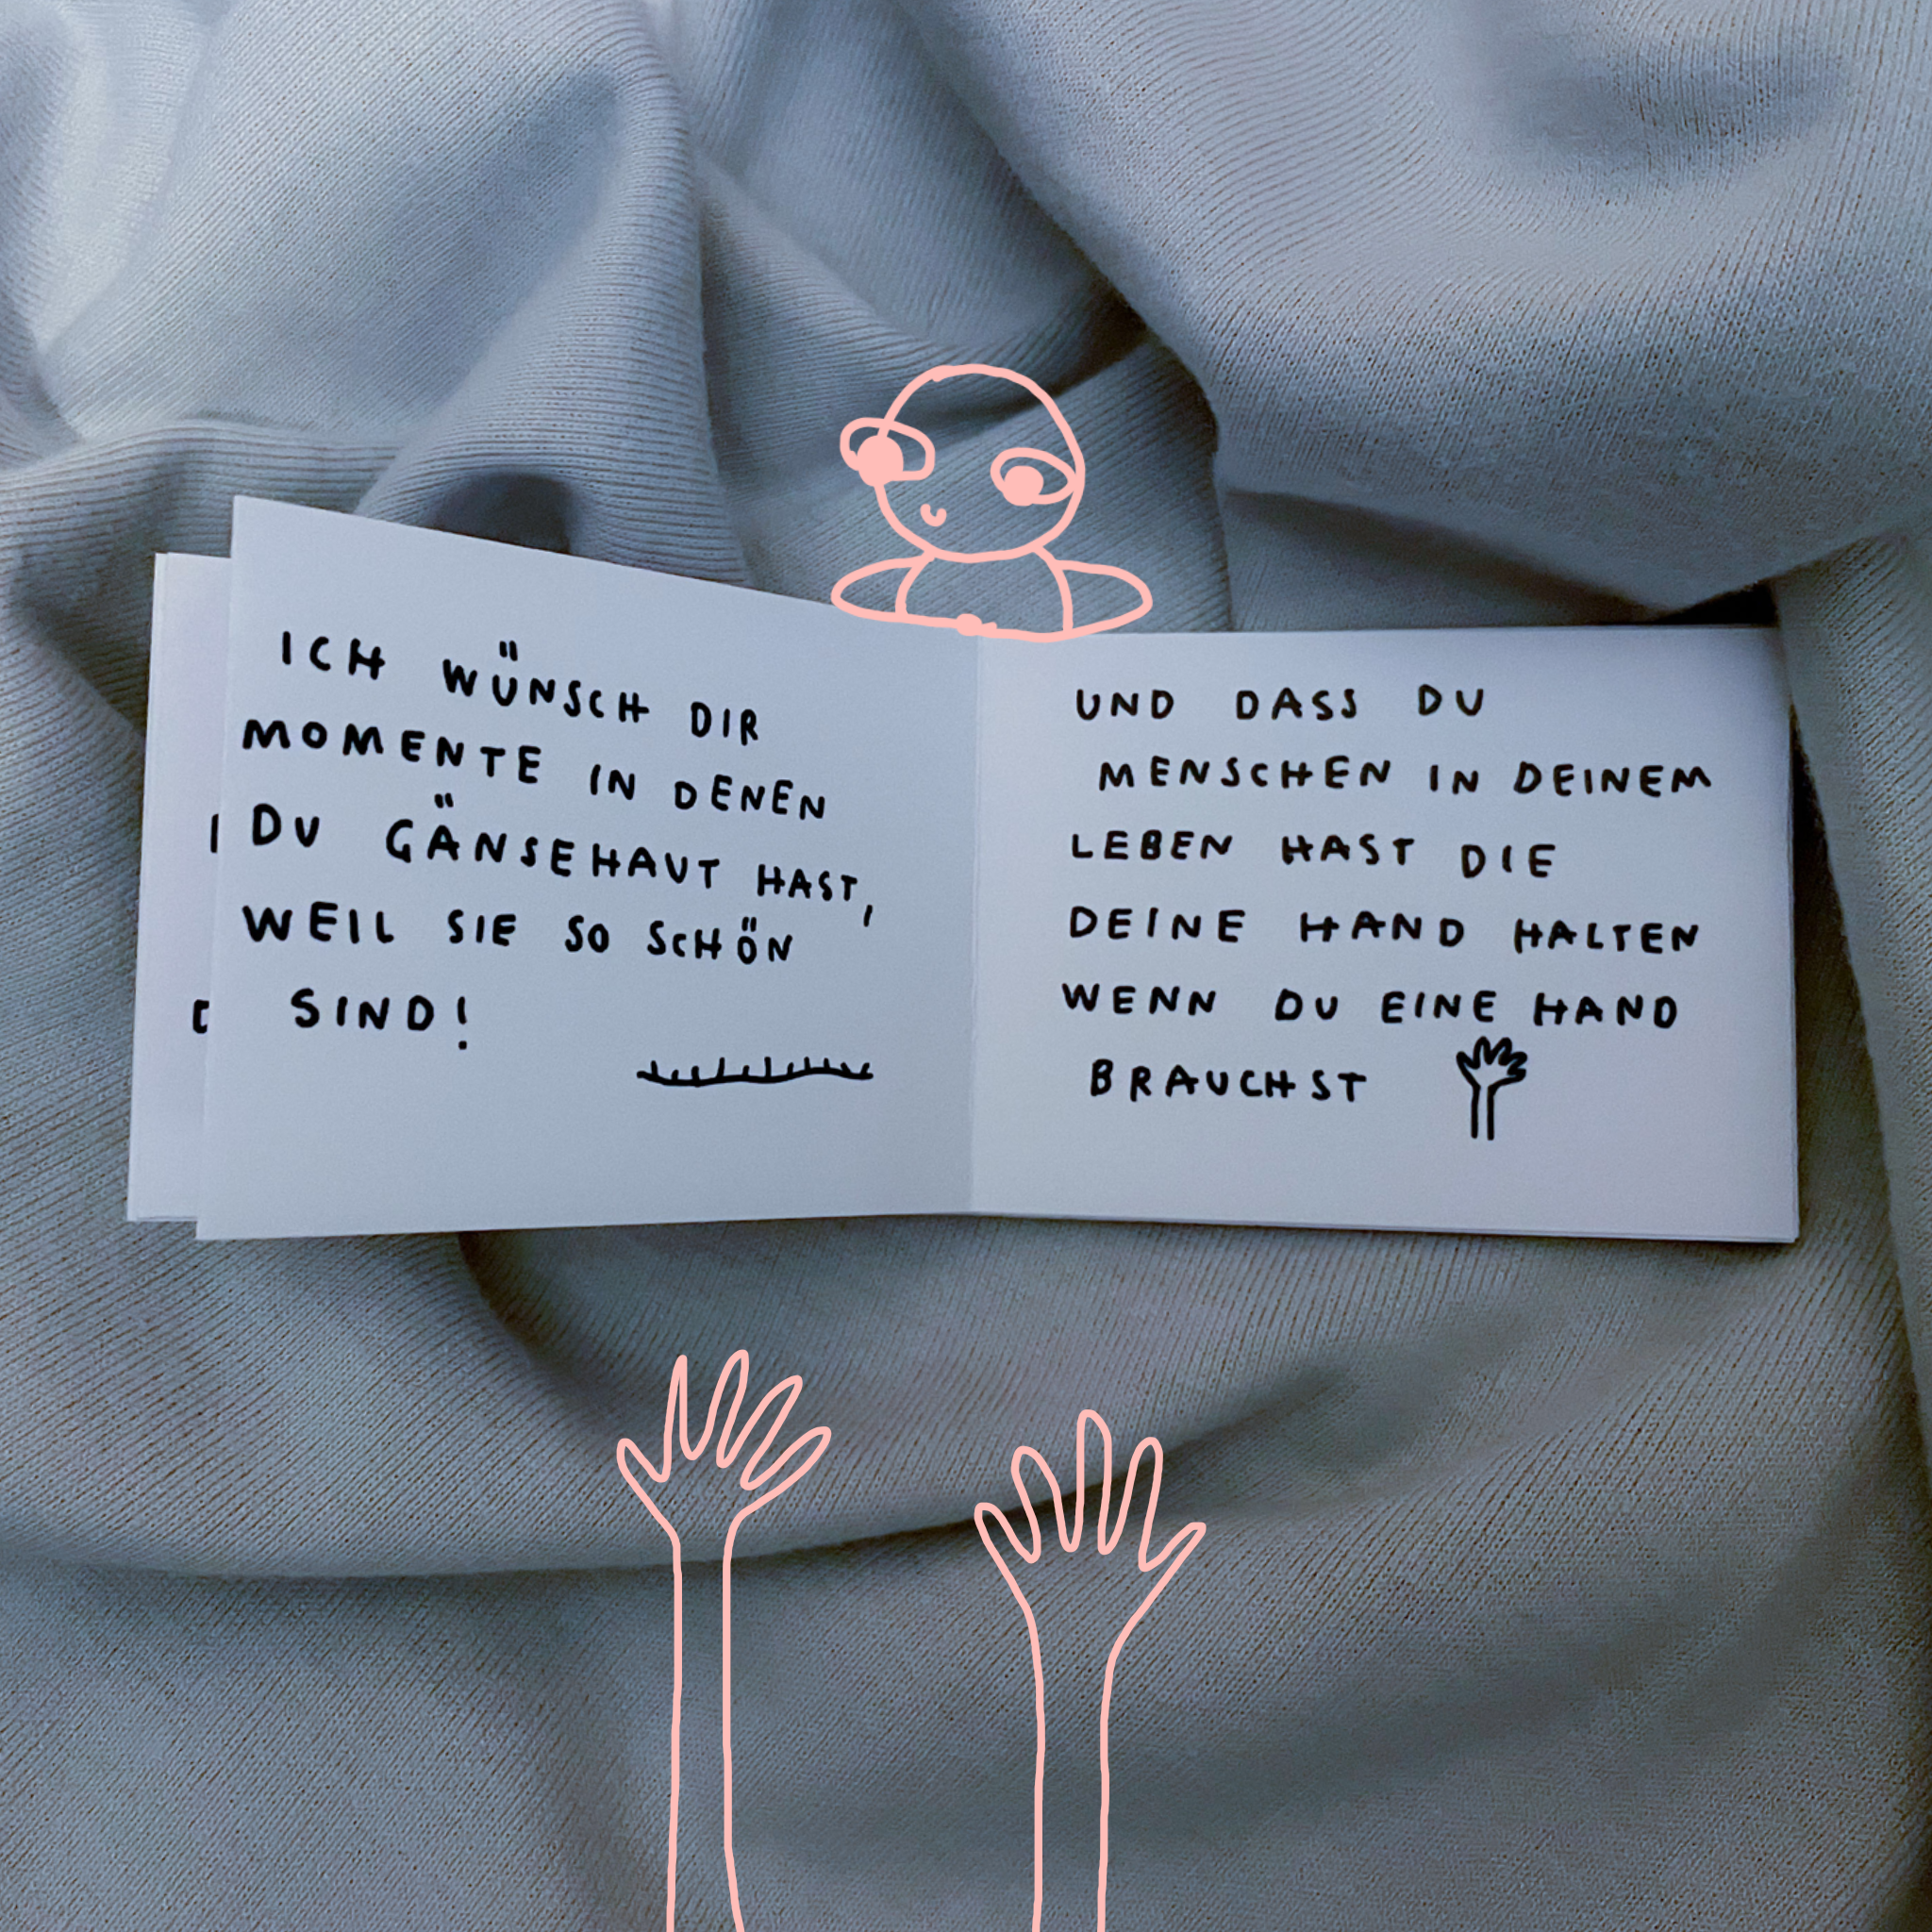 ICH WÜNSCH DIR
MOMENTE IN DENEN
DU GÄNSEHAUT HAST,
WEIL SIE SO SCHÖN
SIND!
UND DASS DU
MENSCHEN IN DEINEM
LEBEN HAST DIE
DEINE HAND HALTEN
WENN DU EINE HAND
BRAUCHST